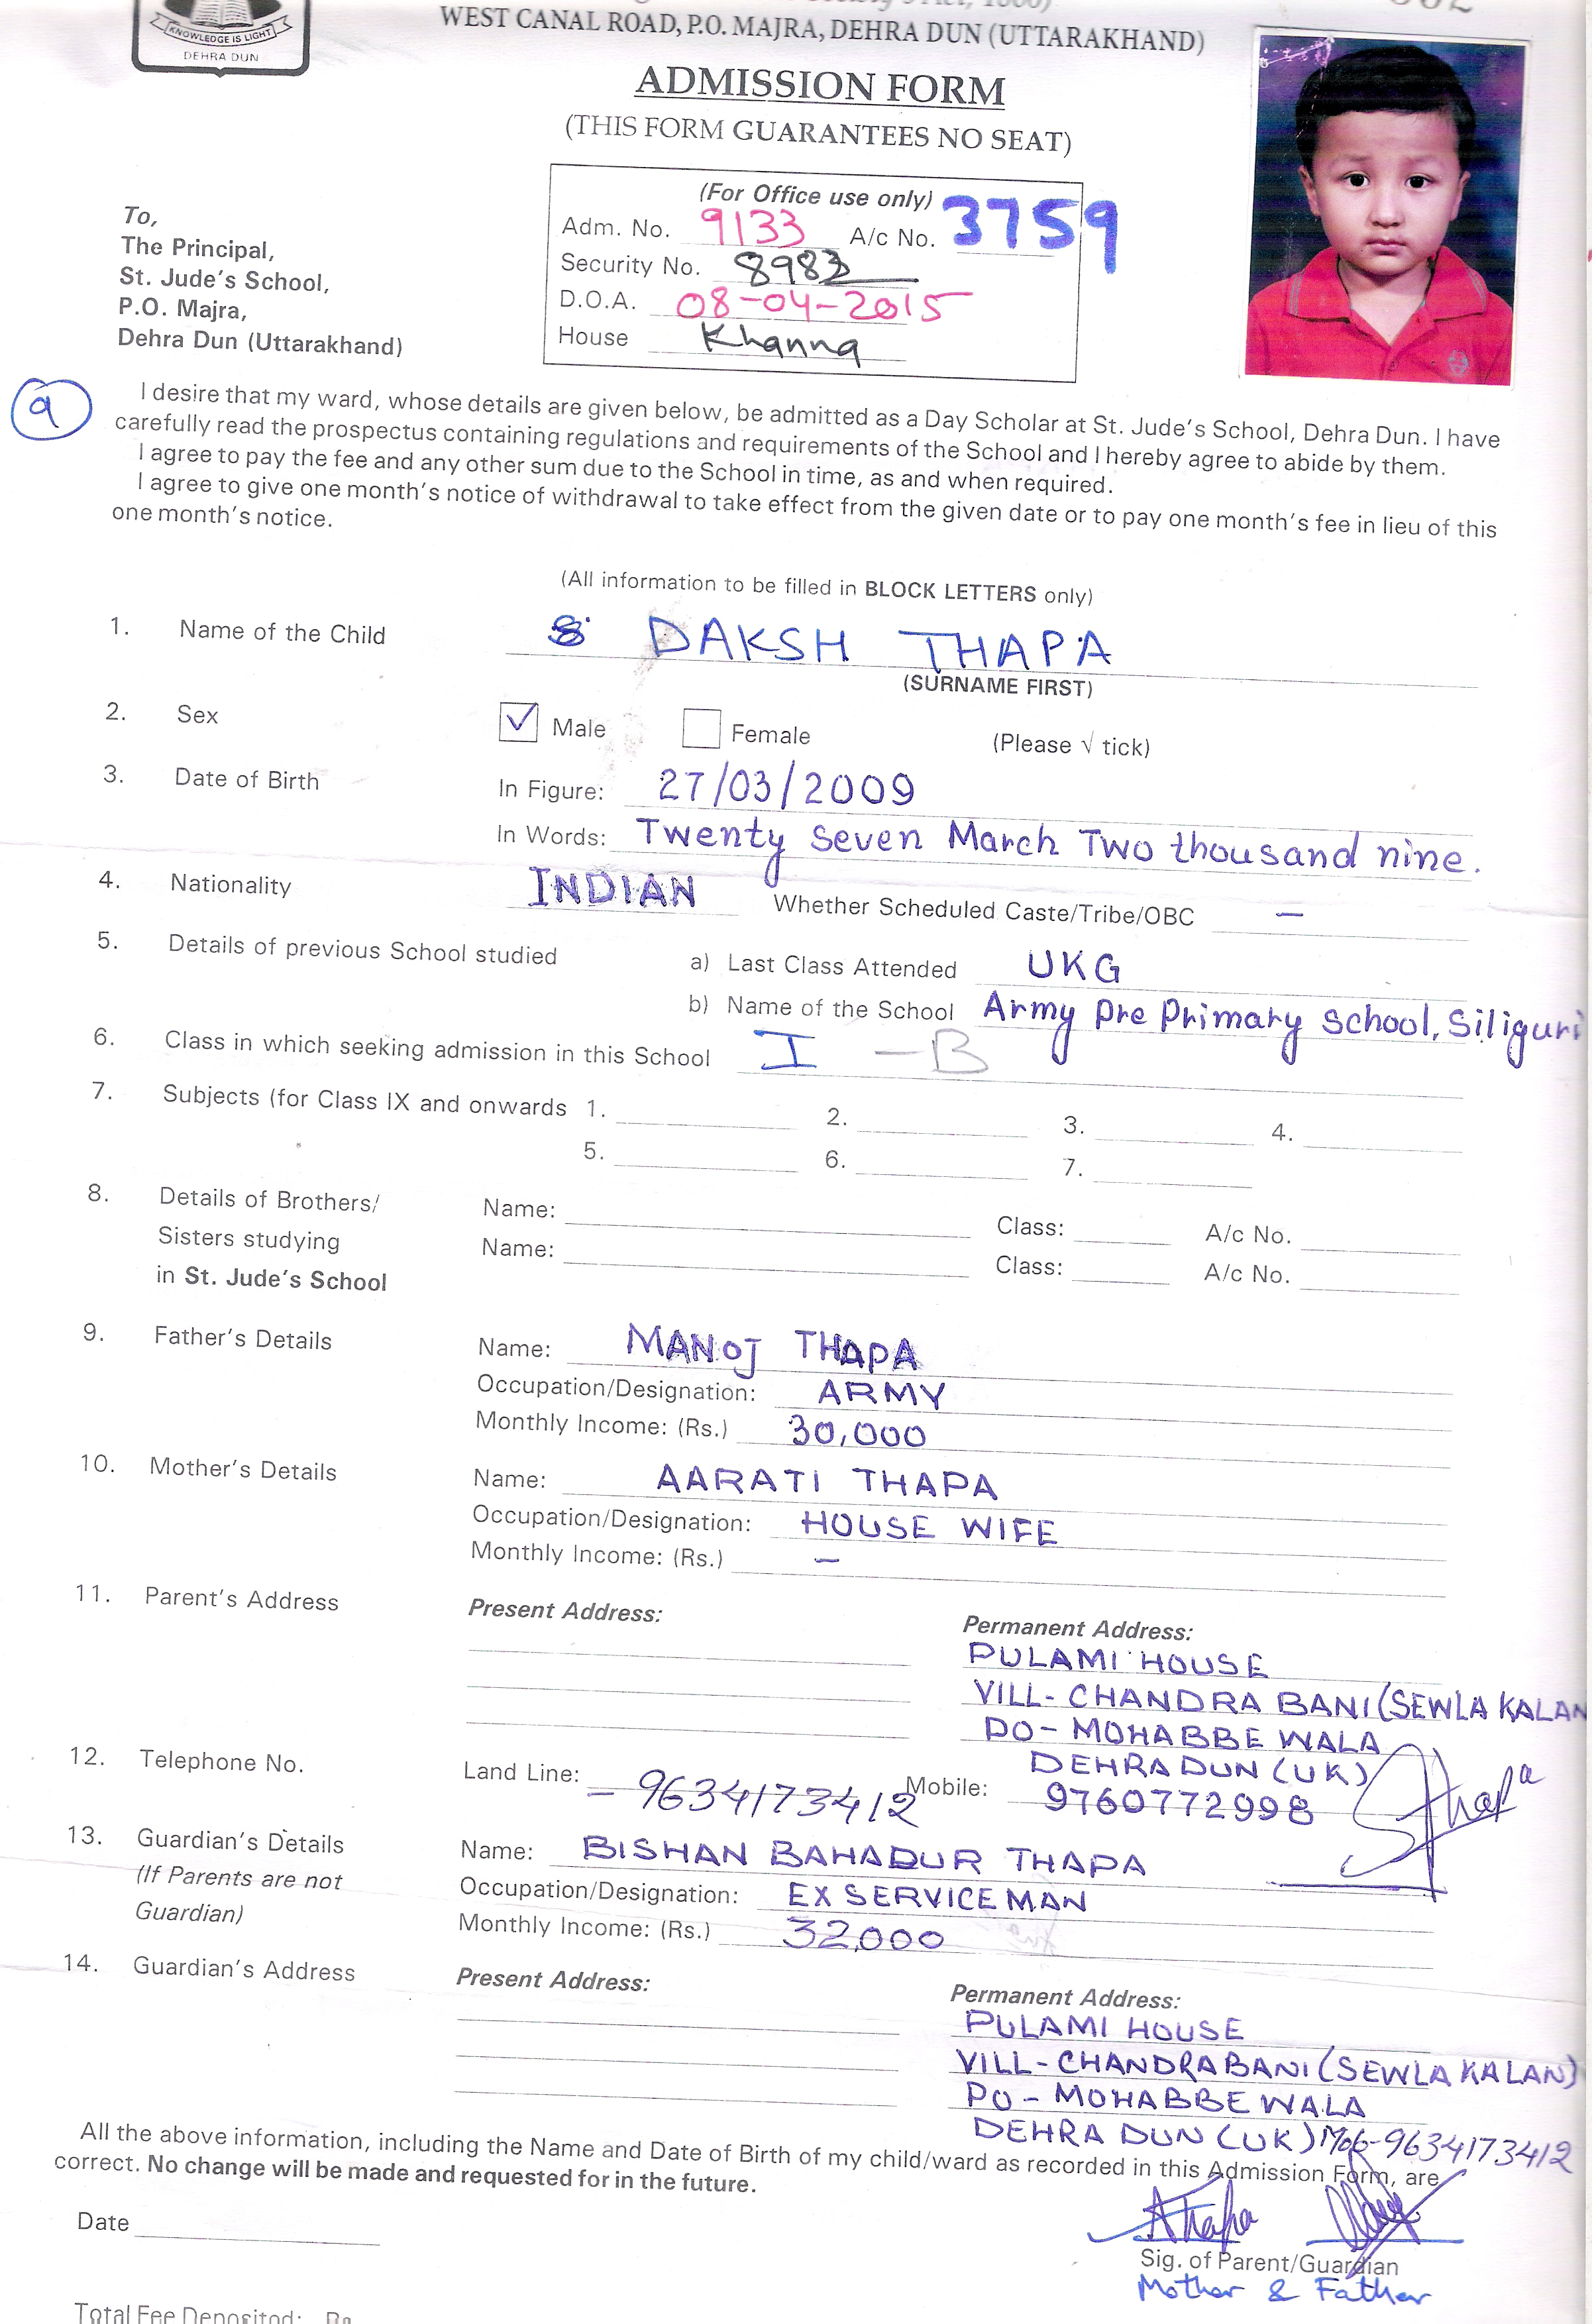 KNOWLEDGE IS LIGHT
DEHRA DUN
WEST CANAL ROAD, P.O. MAJRA, DEHRA DUN (UTTARAKHAND)
ADMISSION FORM
(THIS FORM GUARANTEES NO SEAT)
(For Office use only)
Adm. No. 9133 A/c No. 3759
Security No. 8983
D.O.A. 08-04-2015
House Khanna
To,
The Principal,
St. Jude's School,
P.O. Majra,
Dehra Dun (Uttarakhand)
I desire that my ward, whose details are given below, be admitted as a Day Scholar at St. Jude's School, Dehra Dun. I have
carefully read the prospectus containing regulations and requirements of the School and I hereby agree to abide by them.
I agree to pay the fee and any other sum due to the School in time, as and when required.
I agree to give one month's notice of withdrawal to take effect from the given date or to pay one month's fee in lieu of this
one month's notice.
(All information to be filled in BLOCK LETTERS only)
1. Name of the Child DAKSH THAPA
(SURNAME FIRST)
2. Sex ✓ Male Female (Please √ tick)
3. Date of Birth In Figure: 27/03/2009
In Words: Twenty Seven March Two thousand nine.
4. Nationality INDIAN Whether Scheduled Caste/Tribe/OBC —
5. Details of previous School studied a) Last Class Attended UKG
b) Name of the School Army Pre Primary School, Siliguri
6. Class in which seeking admission in this School I - B
7. Subjects (for Class IX and onwards 1. 2. 3. 4.
5. 6. 7.
8. Details of Brothers/ Name: Class: A/c No.
Sisters studying Name: Class: A/c No.
in St. Jude's School
9. Father's Details Name: MANOJ THAPA
Occupation/Designation: ARMY
Monthly Income: (Rs.) 30,000
10. Mother's Details Name: AARATI THAPA
Occupation/Designation: HOUSE WIFE
Monthly Income: (Rs.) —
11. Parent's Address Present Address: Permanent Address:
PULAMI HOUSE
VILL- CHANDRA BANI (SEWLA KALAN
PO - MOHABBE WALA
DEHRA DUN (UK)
12. Telephone No. Land Line: - 9634173412 Mobile: 9760772998
Thapa
13. Guardian's Details Name: BISHAN BAHADUR THAPA
(If Parents are not Occupation/Designation: EX SERVICE MAN
Guardian) Monthly Income: (Rs.) 32,000
14. Guardian's Address Present Address: Permanent Address:
PULAMI HOUSE
VILL- CHANDRABANI (SEWLA KALAN)
PO - MOHABBE WALA
DEHRA DUN (UK) Mob-9634173412
All the above information, including the Name and Date of Birth of my child/ward as recorded in this Admission Form, are
correct. No change will be made and requested for in the future.
Date
AThapa
Sig. of Parent/Guardian
Mother & Father
Total Fee Deposited: Rs